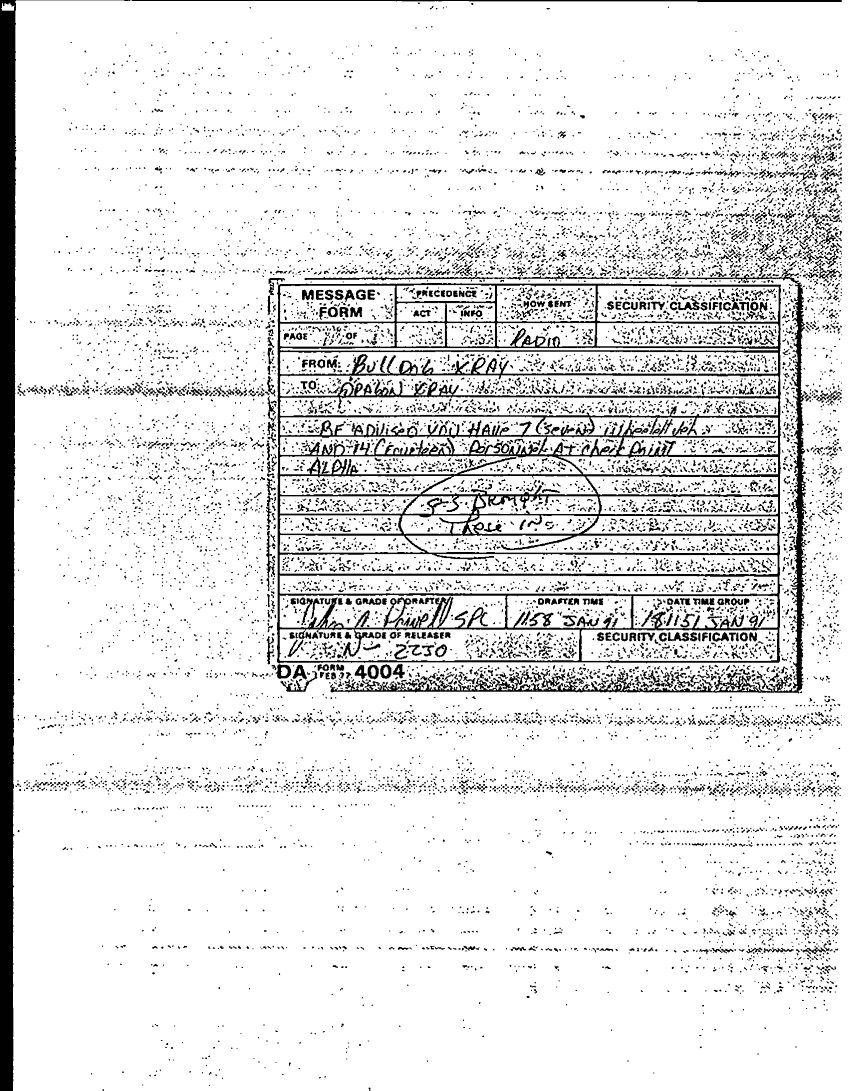 MESSAGE FORM
PRECEDENCE
ACT INFO
HOW SENT
SECURITY CLASSIFICATION
PAGE 1 OF 1
RADIO
FROM: BullDog XRAY
TO: DRAGON XRAY
BE ADVISED YOU HAVE 7 (seven) wheeled veh
AND 14 (fourteen) PERSONNEL At check POINT
ALPHA
These
SIGNATURE & GRADE OF DRAFTER
DRAFTER TIME
DATE TIME GROUP
Powell SPC
1158 JAN 91
181151 JAN 91
SIGNATURE & GRADE OF RELEASER
SECURITY CLASSIFICATION
DA FORM 1 FEB 77 4004